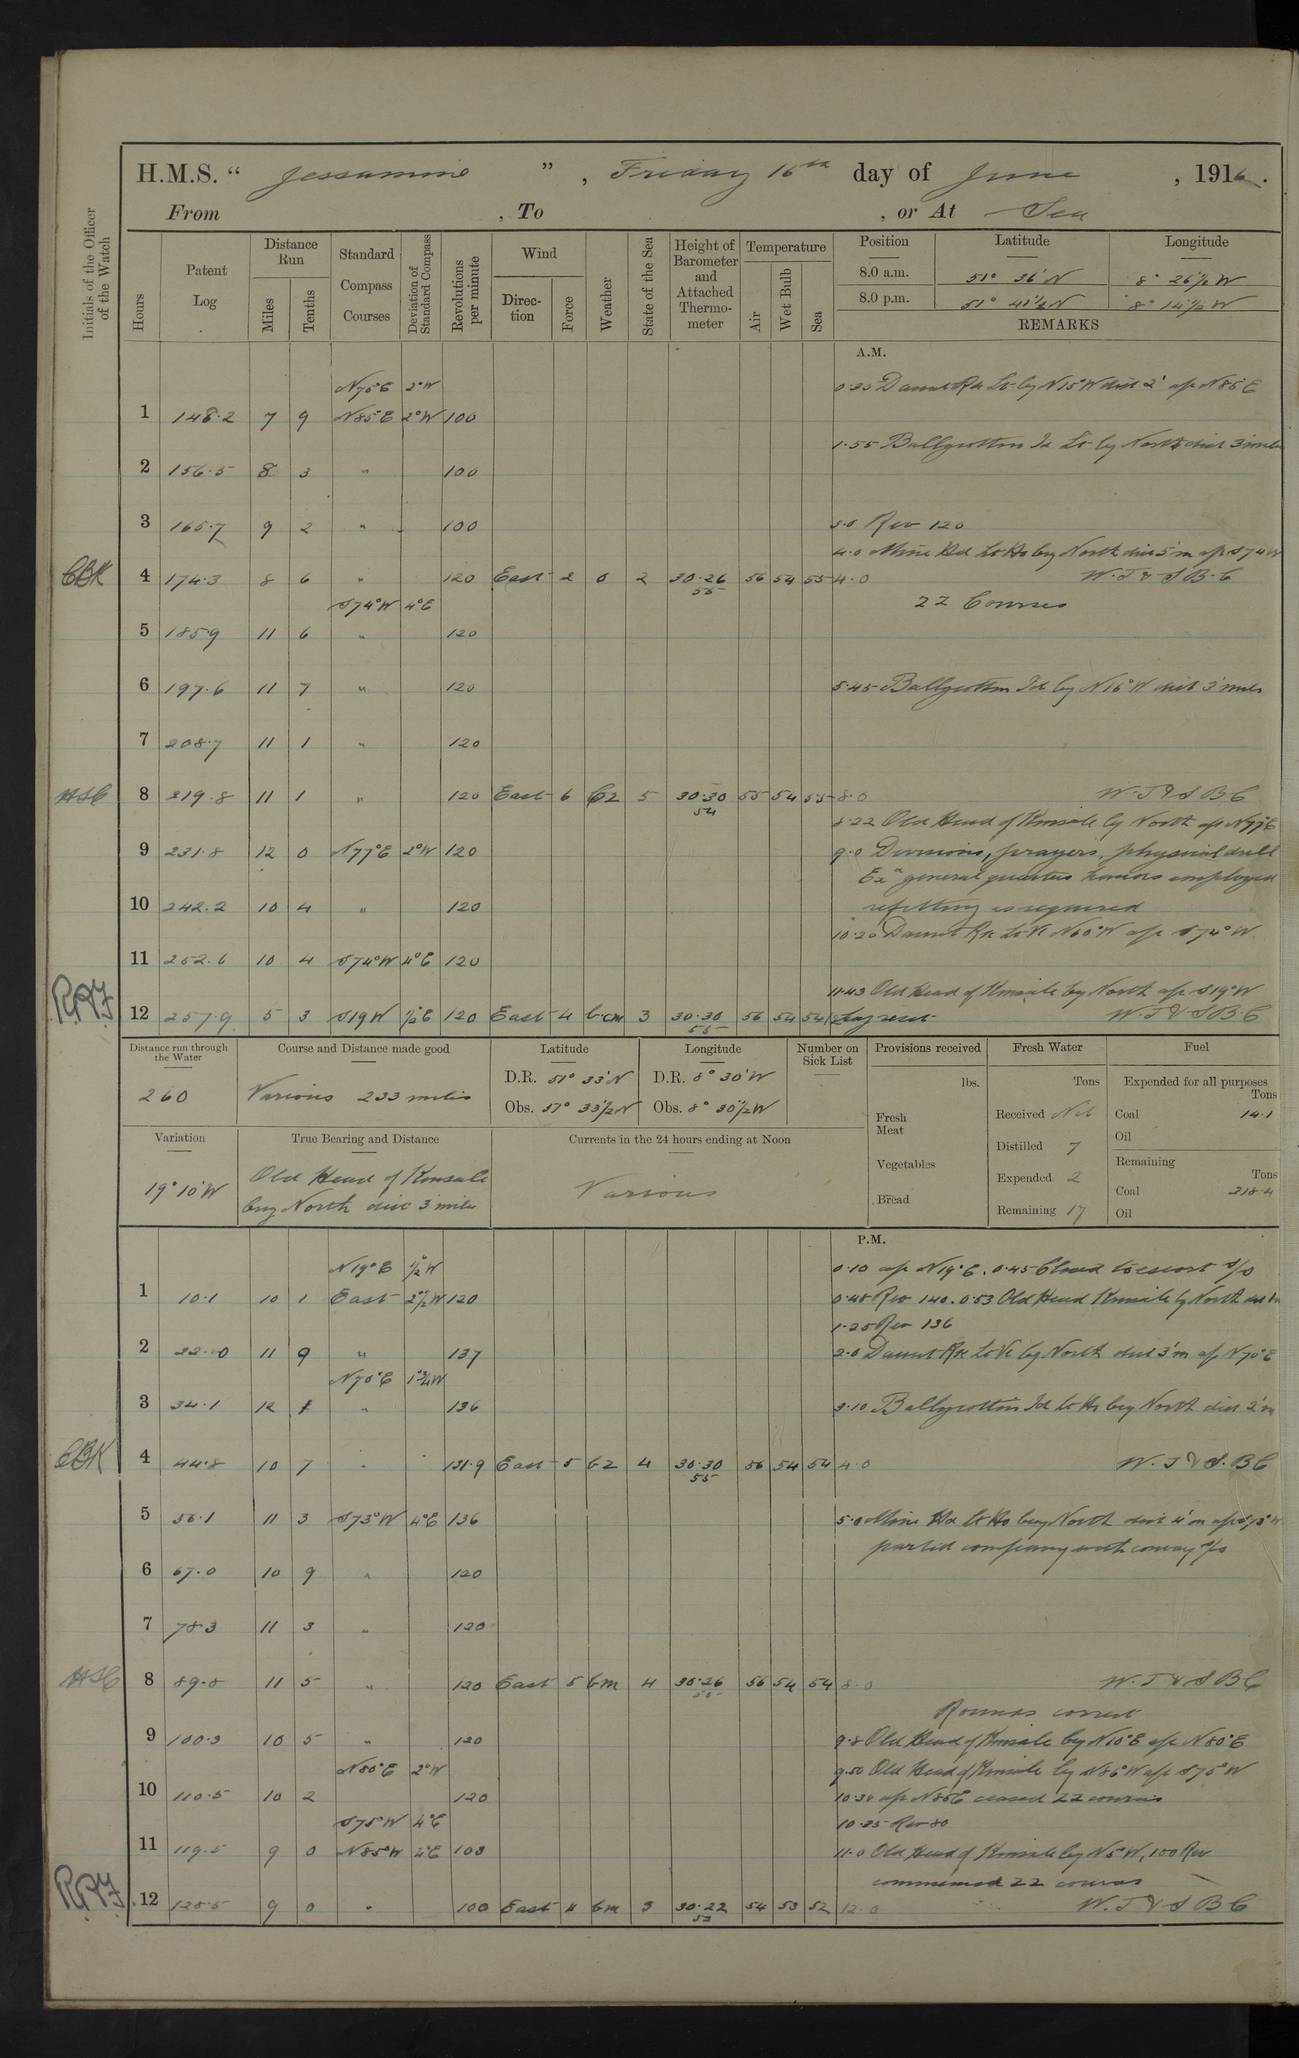 H.M.S. “ Jessamine ”, Friday 16th day of June, 1916.
From , To , or At Sea
Initials of the Officer of the Watch
Hours
Patent Log
Distance Run
Miles
Tenths
Standard Compass Courses
Deviation of Standard Compass
Revolutions per minute
Wind
Direction
Force
Weather
State of the Sea
Height of Barometer and Attached Thermometer
Temperature
Air
Wet Bulb
Sea
Position Latitude Longitude
8.0 a.m. 51° 36' N 8° 26½ W
8.0 p.m. 51° 41½ N 8° 14½ W
REMARKS
A.M.
N70°E 2°W 0.35 Daunt Rk Lt. by N15°W dist 2' a/c N85°E
1 148.2 7 9 N85°E 2°W 100
1.55 Ballycotton Id Lt by North dist 3 miles
2 156.5 8 3 " 100
3 165.7 9 2 " 100 3.0 Rev 120
4.0 Mine Hd Lt Ho brg North dist 5'm a/c S74W
CBK 4 174.3 8 6 " 120 East 2 0 2 30.26 55 56 54 55 4.0 W.T & S B.C
S74°W 4°E ZZ Courses
5 185.9 11 6 " 120
6 197.6 11 7 " 120 5.45 Ballycotton Id by N16°W dist 3 miles
7 208.7 11 1 " 120
HSC 8 219.8 11 1 " 120 East 6 Cz 5 30.30 54 55 54 55 8.0 W.T & S B C
8.22 Old Head of Kinsale by North a/c N77°E
9 231.8 12 0 N77°E 2°W 120 9.0 Divisions, prayers, physical drill
Exd general quarters hands employed
10 242.2 10 4 " 120 refitting as required
10.20 Daunt Rk Lt Vl N60°W a/c S74°W
11 252.6 10 4 S74°W 4°E 120
11.43 Old Head of Kinsale by North a/c S19°W
RRF 12 257.9 5 3 S19W ½°E 120 East 4 b.cm 3 30.30 55 56 54 54 W.T & S B.C
Distance run through the Water
260
Course and Distance made good
Various 233 miles
Latitude
D.R. 51° 33' N
Obs. 51° 33½ N
Longitude
D.R. 8° 30' W
Obs. 8° 30½ W
Number on Sick List
Provisions received
lbs.
Fresh Meat
Vegetables
Bread
Fresh Water
Tons
Received Nil
Distilled 7
Expended 2
Remaining 17
Fuel
Expended for all purposes
Tons
Coal 14.1
Oil
Remaining
Tons
Coal 218.4
Oil
Variation
19° 10' W
True Bearing and Distance
Old Head of Kinsale
brg North dist 3 miles
Currents in the 24 hours ending at Noon
Various
P.M.
N19°E ½°W 0.10 a/c N19°E. 0.45 Closed to escort S/S
1 10.1 10 1 East 2½°W 120 0.48 Rev 140. 0.53 Old Head Kinsale by North
1.25 Rev 136
2 22.0 11 9 " 137 2.0 Daunt Rk Lt Vl by North dist 3'm a/c N70°E
N70°E 1¾W
3 34.1 12 1 " 136 3.10 Ballycotton Id Lt Ho brg North dist 2'm
CBK 4 44.8 10 7 " 131.9 East 5 bz 4 30.30 55 56 54 54 4.0 W.T & S.BC
5 56.1 11 3 S73°W 4°E 136 5.0 Mine Hd Lt Ho brg North dist 4'm a/c S73°W
parted company with convoy S/S
6 67.0 10 9 " 120
7 78.3 11 3 " 120
HSC 8 89.8 11 5 " 120 East 5 bm 4 30.26 55 56 54 54 8.0 W.T & S BC
Rounds correct
9 100.3 10 5 " 120 9.8 Old Head of Kinsale by N10°E a/c N80°E
N80°E 2°W 9.50 Old Head of Kinsale by N86°W a/c S75°W
10 110.5 10 2 120 10.30 a/c N85E ceased ZZ courses
S75°W 4°E 10.35 Rev 80
11 119.5 9 0 N85°W 4°E 100 11.0 Old Head of Kinsale by N5°W, 100 Rev
commenced ZZ courses
RRF 12 128.5 9 0 " 100 East 4 bm 3 30.22 53 54 53 52 12.0 W.T & S B C